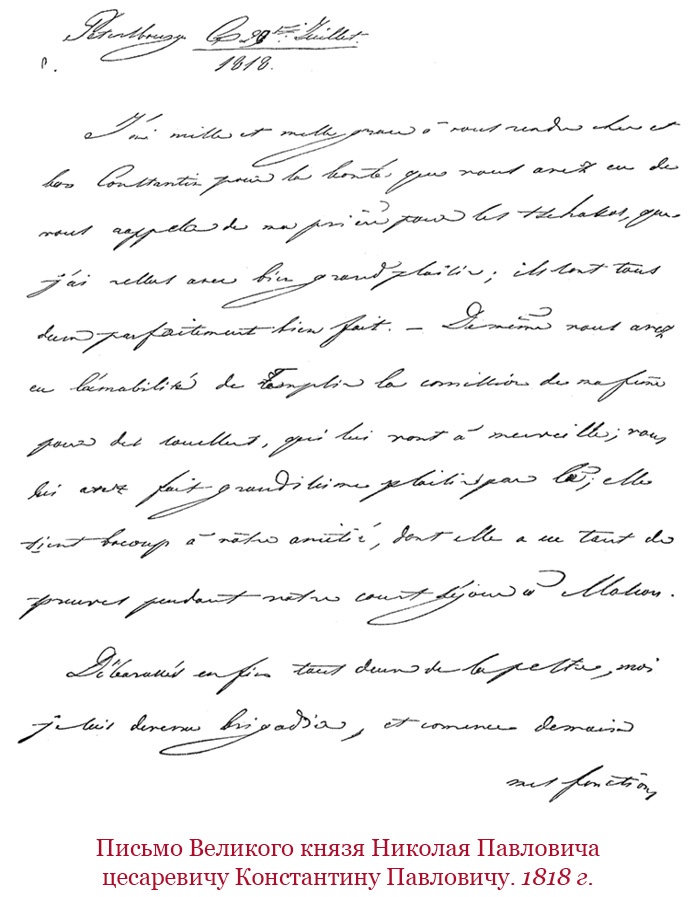 Petersbourg Ce 20me Juillet.
1818.
J'ai mille et mille grace à vous rendre cher et
bon Constantin pour la bonté que vous avez eu de
vous rappeler de ma prière pour les tschakos, que
j'ai reçus avec bien grand plaisir; ils sont tous
deux parfaitement bien fait. — De même vous avez
eu l'amabilité de remplir la comission de ma femme
pour des souliers, qui lui vont à merveille; vous
lui avez fait grandissime plaisir par là; elle
tient baucoup à vôtre amitié, dont elle a eu tant de
preuves pendant nôtre court séjour à Moscou.
Débarassés enfin tout deux de la peste, moi
je suis devenu brigadier, et comence demain
mes fonctions
Письмо Великого князя Николая Павловича
цесаревичу Константину Павловичу. 1818 г.